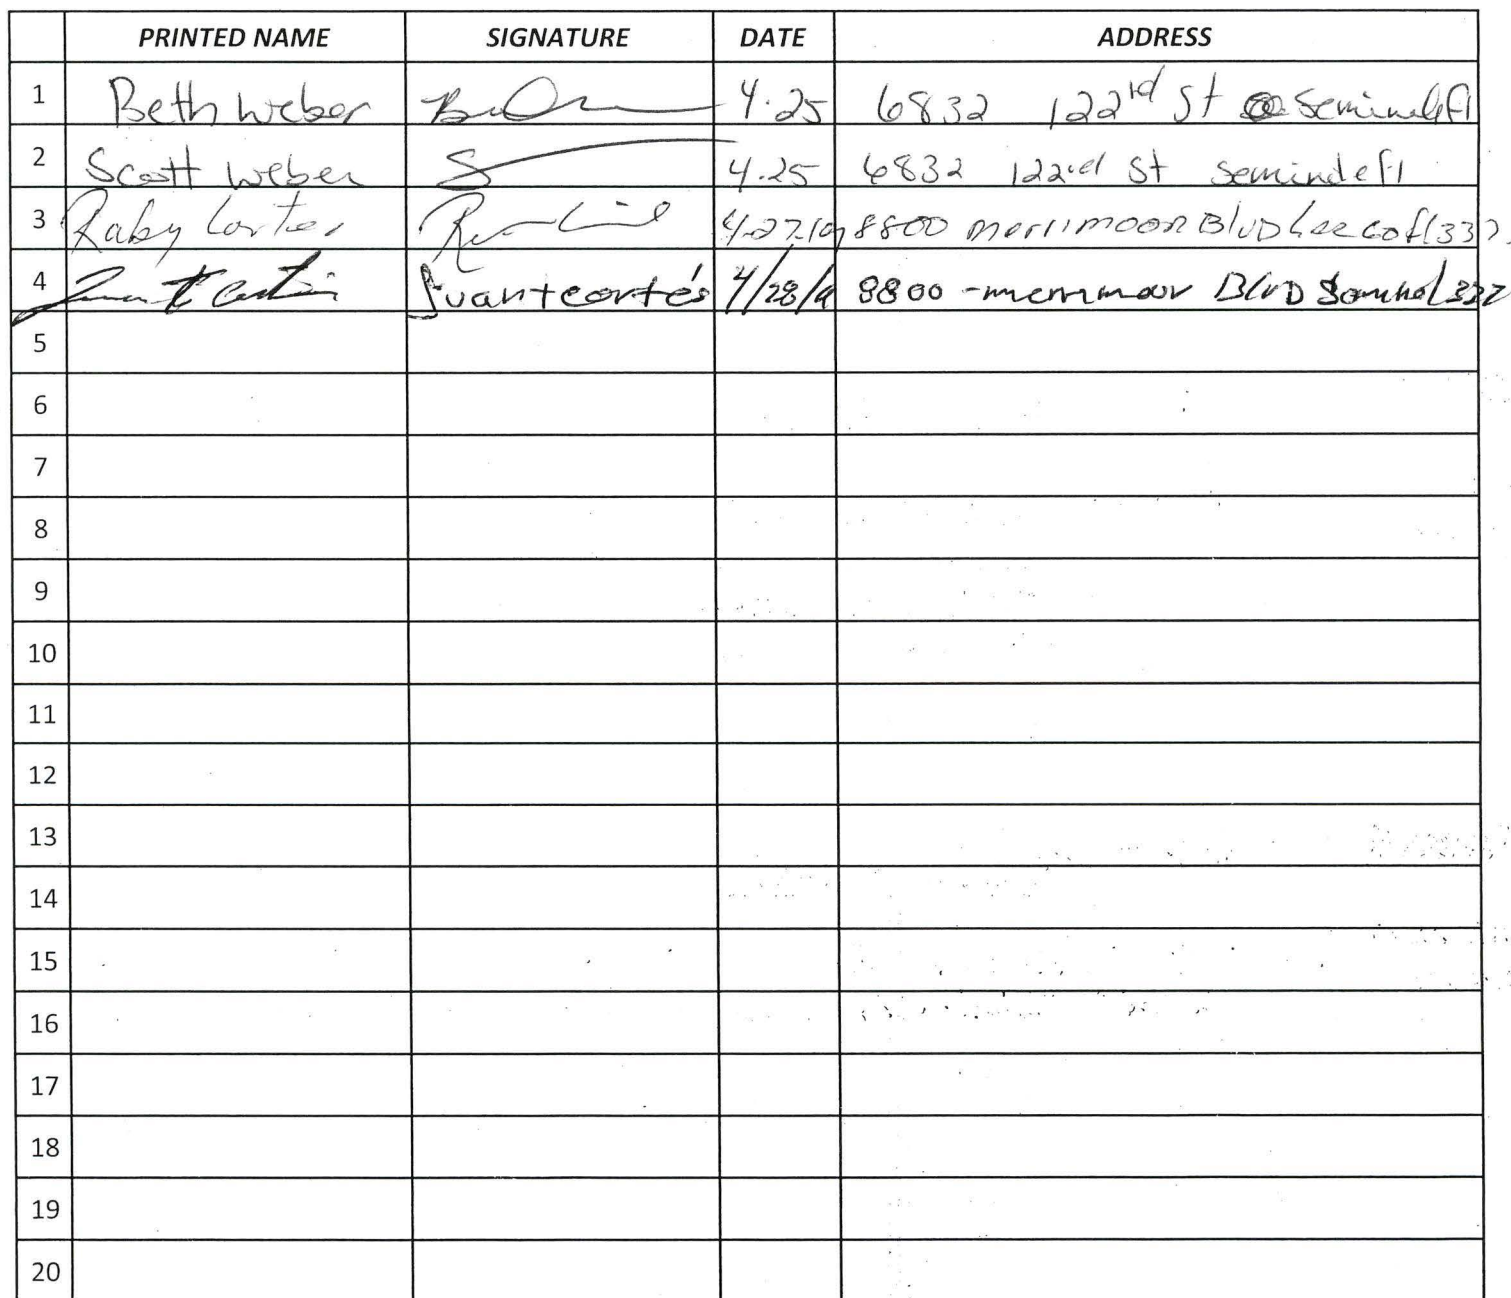 PRINTED NAME SIGNATURE DATE ADDRESS
1 Beth Weber 4.25 6832 122rd St Seminole fl
2 Scott Weber 4.25 6832 122rd St Seminole fl
3 Raby Cortes 4-27-19 8800 merrimoor BlvD fl 337
4 Juan t cortés 4/28/19 8800 - merrimoor BlvD 337
5
6
7
8
9
10
11
12
13
14
15
16
17
18
19
20